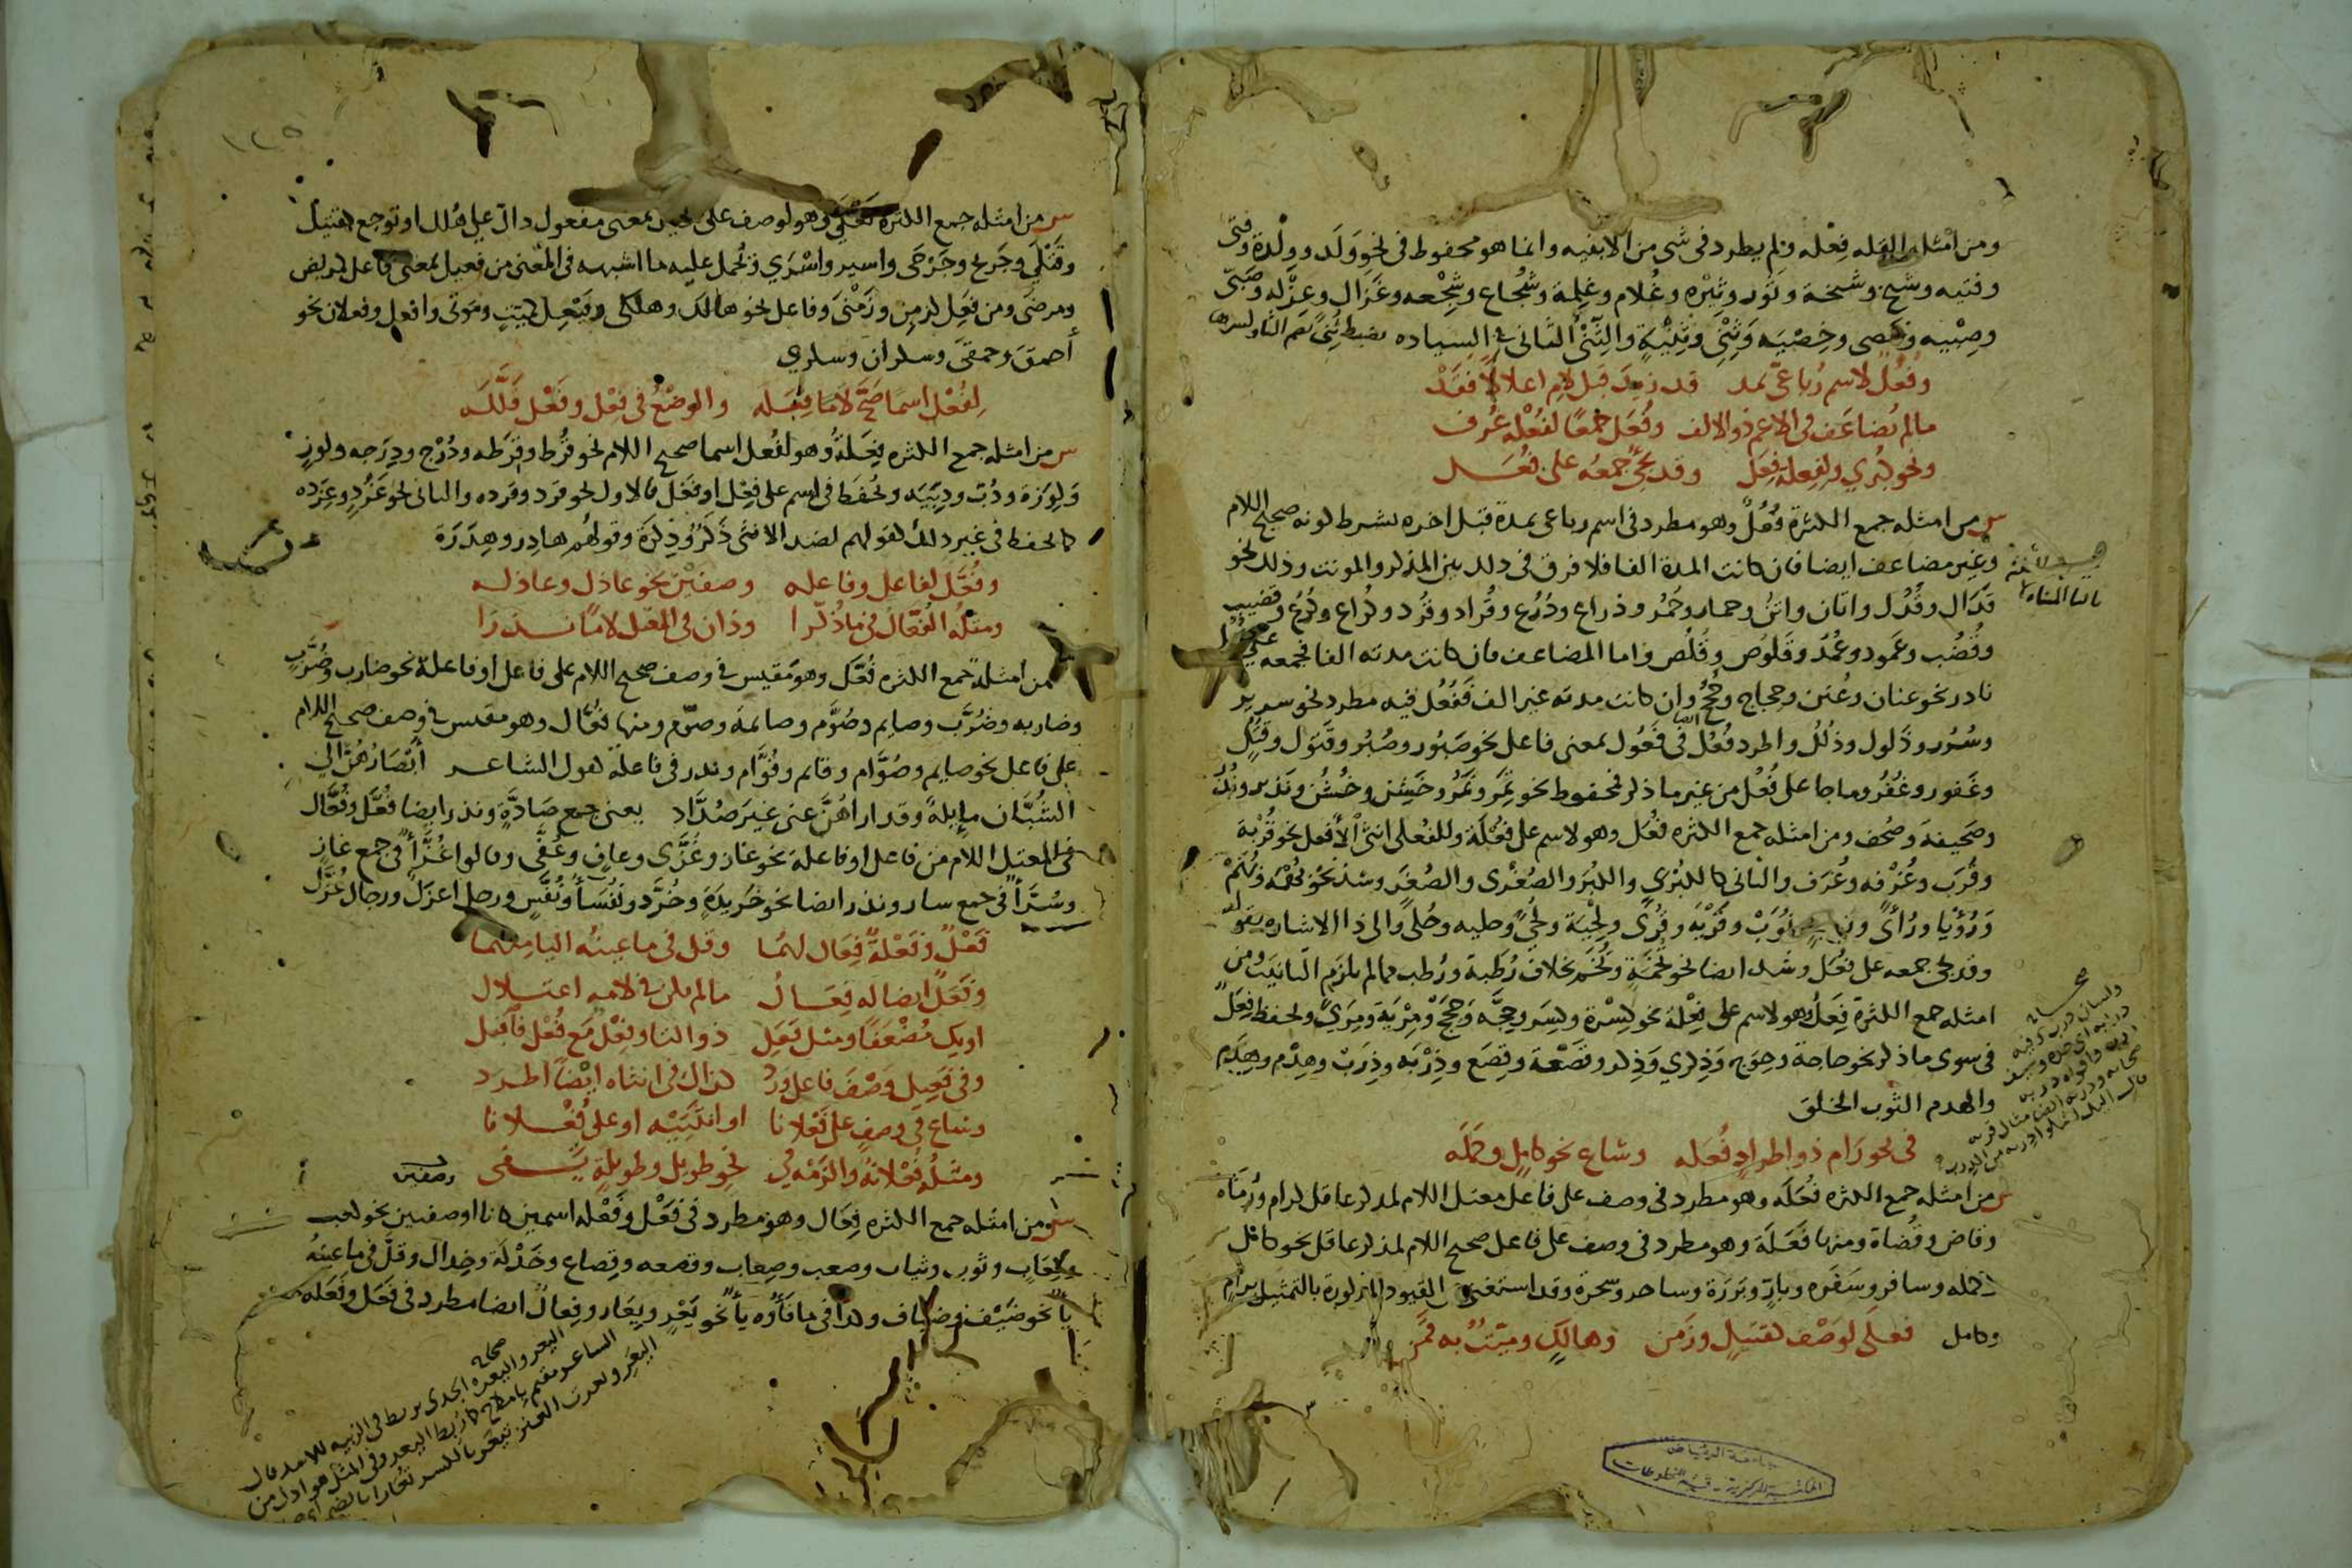 ومن امثله القله فِعْله ولم يطرد فى شى من الابنيه وانما هو محفوظ فى نحو وَلَد ووِلْدة وفتى
وفتيه وشيخ وشيخة وثَور وثِيْرِه وغُلام وغِلمة وشُجاع وشِجْعه وغَزال وغِزْله وصَبىّ
وصِبْيه وخصى وخِصْيَه وَثِنْي وثِنْيَةٍ والثِّنْيُ الثانى فى السياده
وفُعُل لاسم رُباعىّ بمد قد زيدَ قبل لامٍ اعلالاً فقَدْ
مالم يُضاعَف فى الاعم ذو الالف وفُعَل جمعًا لفُعْلة عُرف
ونحو كبرى ولِفِعلة فِعَل وقد يجىُ جمعه على فُعَل
س من امثله جمع الكثرة فُعُلٌ وهو مطرد فى اسم رباعى بمدة قبل اخره بشرط كونه صحيح اللام
وغير مضاعف ايضا فان كانت المدة الفا فلا فرق فى ذلك بين المذكر والمونث وذلك نحو
قَذَال وقُذُل واتان واتُن وحمار وحُمُر وذراع وذُرُع وقُراد وقُرُد وكُراع وكُرُع وقضيب
وقُضُب وعَمود وعُمُد وقَلُوص وقُلُص واما المضاعف فان كانت مدته الفا فجمعه على
نادر نحو عنان وعُنن وحجاج وحُجُج وان كانت مدته غير الف فَفُعُل فيه مطرد نحو سرير
وسُرُر وذَلول وذُلُل واطرد فُعُل فى فَعُول بمعنى فاعل نحو صَبُور وصُبُر وقَتول وقُتُل
وغَفور وغُفُر وما جا على فُعُل من غير ما ذكر فمحفوظ نحو نَمِر ونُمُر وخَشِن وخُشُن ونَذير ونُذُر
وصَحيفة وصُحف ومن امثله جمع الكثره فُعَل وهو لاسم على فُعْلَة وللفُعلى انثى الأفعل نحو قُرْبة
وقُرَب وغُرْفه وغُرَف والثانى كالكبْرى والكبَر والصُغْرى والصُغَر وشذ نحو
وَرُؤْيا ورُأىً ونَوبة ونُوَبْ وقَرْيَه وقُرىً ولِحْية ولُحىً وحليه وحُلىً والى ذا الاشاره بقوله
وقد يجى جمعه على فُعَل وشذ ايضا نحو تُخمَةٍ وتُخَم بخلاف رُطَبة ورُطب مما لم يلزم التانيث ومن
امثله جمع الكثرة فِعَلٌ وهو لاسم على فِعْلة نحو كِسْرة وكِسَر وحِجّه وَحِجَجْ ومِرْيَة ومِرَىً ويحفظ فِعَل
فى سوى ماذكر نحو حاجة وحِوَج وَذِكري وَذِكر وقَصْعة وقِصَع وذِرْبَه وذِرَبْ وهِدْم وهِدَم
والهدم الثوب الخلق
فى نحو رَام ذو اطرادٍ فُعَله وشاع نحو كامِلٍ وكَمَلَه
س من امثله جمع الكثره فُعَلَه وهو مطرد فى وصف على فاعل معتل اللام لمذكر عاقل كرام ورُمَاه
وقاض وقُضاة ومنها فَعَلَة وهو مطرد فى وصف على فاعل صحيح اللام لمذكر عاقل نحو كامل
وكمله وسافر وسَفَره وبارّ وبَرَرَة وساحر وسَحَرة وقد استغنى عن القيود المذكورة بالتمثيل برام
وكامل فعلى لوَصْف كقتيلٍ وزَمِن وهالكٍ وميّتٌ به قَمَن
جامعة الرياض
المكتبة المركزية - قسم المخطوطات
١٢٥
س من امثله جمع الكثره فَعْلَى وهو لوصف على فعيل بمعنى مفعول دالّ على هُلك او توجع كقتيل
وقَتْلَى وجَريح وجَرْحَى واسير واسْرَى ويُحمل عليه ما اشبهه فى المعنى من فعيل بمعنى فاعل كمريض
ومرضَى ومن فَعِل كزمِن وزَمْنَى وفاعل نحو هالك وهلكَى وفَيْعِل كميّتٍ ومَوتَى وافعل وفعلان نحو
أحمقَ وحمقَى وسكران وسكري
لِفُعْل اسمًا صَحَّ لامًا فِعَلَه والوضْعُ فى فِعْل وفَعْل قَلَّلَه
س من امثله جمع الكثره فِعَلةُ وهو لفُعل اسما صحيح اللام نحو قُرط وقِرَطه ودُرْج ودِرَجه وكوزٍ
وَكِوَزة ودُبّ ودِبَبَه ويُحفَظ فى اسم على فِعْل او فَعْل فالاول نحو قِرد وقرده والثانى نحو غَرْدٍ وغِرَده
كما يحفظ فى غير ذلك كقولهم لضد الانثَى ذَكَرٌ وَذِكَرَة وقولهُم هادِر وهِدَرَة
وفُعَّل لفاعل وفاعله وصفين نحو عاذل وعاذله
ومثلهُ الفُعّال فى ماذُكّرا وذان فى المعل لامًا نَدَرَا
من امثلة جمع الكثره فُعَّل وهو مَقيس فى وصف صحيح اللام على فاعل او فاعلة نحو ضارب وضُرَّبٍ
وضاربه وضُرَّب وصايم وصُوَّم وصايمة وصوّم ومنها فُعَّال وهو مقيس فى وصف صحيح اللام
على فاعل نحو صايم وصُوَّام وقائم وقُوَّام وندر فى فاعلة كقول الشاعر أَبْصَارُهُنَّ الى
الشُبَّان مايلةً وقد اراهُنَّ عنى غيَر صُدَّاد يعنى جمع صَادَّةٍ وندر ايضا فُعَّل وفُعَّال
فى المعتل اللام من فاعل او فاعلة نحو غاز وغُزَّى وعافٍ وعُفَّى وقالوا غُزَّاً فى جمع غازٍ
وسُرَّاً فى جمع سار وندر ايضا نحو خَريدَةٍ وخُرَّد ونُفَسَاً ونُفَّسٍ ورجل اعزَل ورجال عُزَّل
فَعْلٌ وفَعْلةٌ فِعَال لهُما وقل فى ما عينُه اليا منهما
وفَعَلٌ ايضا له فِعَالُ مالم يكن فى لامه اعتلال
اويك مُضْعَفًا ومثل فَعَلِ ذو التا وفِعْل مَع فُعْل فاقبل
وفى فَعِيلٍ وَصْفَ فاعل وَرَدْ كذاك فى انثاه ايْضًا اطرد
وشاع فى وصفٍ على فَعْلانا او انثَيَيْه او على فُعْلانا
ومثلُه فُعْلانةٌ والزَمْه فى نحو طويل وطويلةٍ تَفى
س ومن امثله جمع الكثره فِعَال وهو مطرد فى فَعْل وفَعْله اسمين كانا او صفتين نحو كعب
وكِعَابٍ وثوب وثياب وصعب وصِعاب وقصعه وقِصاع وخَدْلَة وخِدال وقلَّ فى ما عينُهُ
ياً نحو ضَيْف وضِيَاف وندر فى ما فَاؤه ياً نحو يَعْرٍ ويِعَار وفِعالٌ ايضا مطرد فى فَعَل وفَعَله
صحاح
البعر واليعره الجدى يربط فى الزبيه للاسد قال